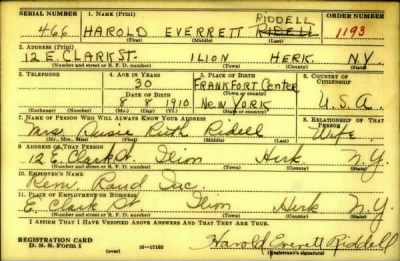 SERIAL NUMBER 1. NAME (Print) ORDER NUMBER
RIDDELL
466 HAROLD EVERETT RIDELL 1193
(First) (Middle) (Last)
2. ADDRESS (Print)
12 E. CLARK ST. ILION HERK. N.Y.
(Number and street or R. F. D. number) (Town) (County) (State)
3. TELEPHONE 4. AGE IN YEARS 5. PLACE OF BIRTH 6. COUNTRY OF CITIZENSHIP
30 FRANKFORT CENTER
DATE OF BIRTH (Town or county)
8 8 1910 NEW YORK U.S.A.
(Exchange) (Number) (Mo.) (Day) (Yr.) (State or country)
7. NAME OF PERSON WHO WILL ALWAYS KNOW YOUR ADDRESS 8. RELATIONSHIP OF THAT PERSON
Mrs. Ruth Ridell Wife
(Mr., Mrs., Miss) (First) (Middle) (Last)
9. ADDRESS OF THAT PERSON
12 E. Clark St. Ilion Herk N.Y.
(Number and street or R. F. D. number) (Town) (County) (State)
10. EMPLOYER'S NAME
Rem. Rand Inc.
11. PLACE OF EMPLOYMENT OR BUSINESS
E. Clark St Ilion Herk N.Y.
(Number and street or R. F. D. number) (Town) (County) (State)
I AFFIRM THAT I HAVE VERIFIED ABOVE ANSWERS AND THAT THEY ARE TRUE.
REGISTRATION CARD
D. S. S. Form 1 16—17105 Harold Everett Riddell
(Registrant's signature)